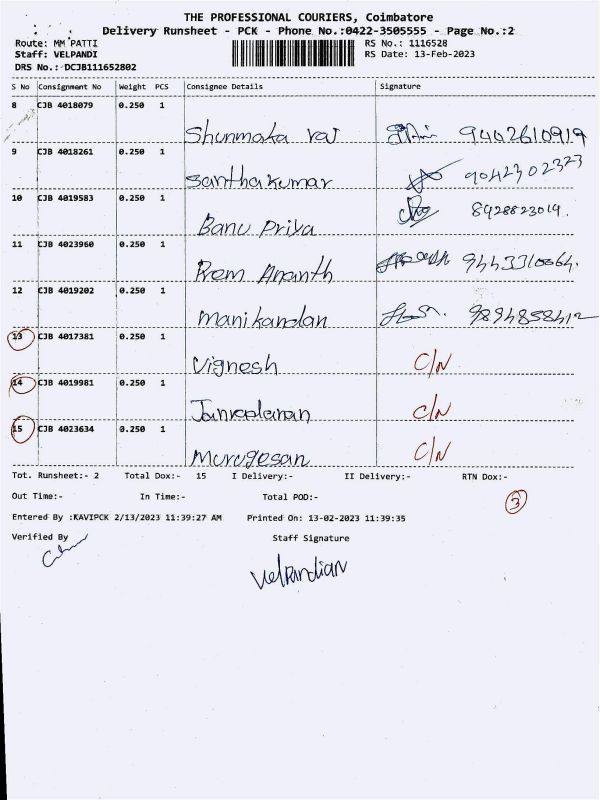 THE PROFESSIONAL COURIERS, Coimbatore
Delivery Runsheet - PCK - Phone No.:0422-3505555 - Page No.:2
Route: MM PATTI RS No.: 1116528
Staff: VELPANDI RS Date: 13-Feb-2023
DRS No.: DCJB111652802
S No Consignment No Weight PCS Consignee Details Signature
8 CJB 4018079 0.250 1
Shunmaka raj 9442610919
9 CJB 4018261 0.250 1
Santhakumar 9042302323
10 CJB 4019583 0.250 1
Banu Priya 8428823014.
11 CJB 4023960 0.250 1
Prem Ananth 9443310064.
12 CJB 4019202 0.250 1
Manikandan 9894858412
13 CJB 4017381 0.250 1
Vignesh C/N
14 CJB 4019981 0.250 1
C/N
15 CJB 4023634 0.250 1
Murugesan C/N
Tot. Runsheet:- 2 Total Dox:- 15 I Delivery:- II Delivery:- RTN Dox:-
Out Time:- In Time:- Total POD:- 3
Entered By :KAVIPCK 2/13/2023 11:39:27 AM Printed On: 13-02-2023 11:39:35
Verified By Staff Signature
Velpandian